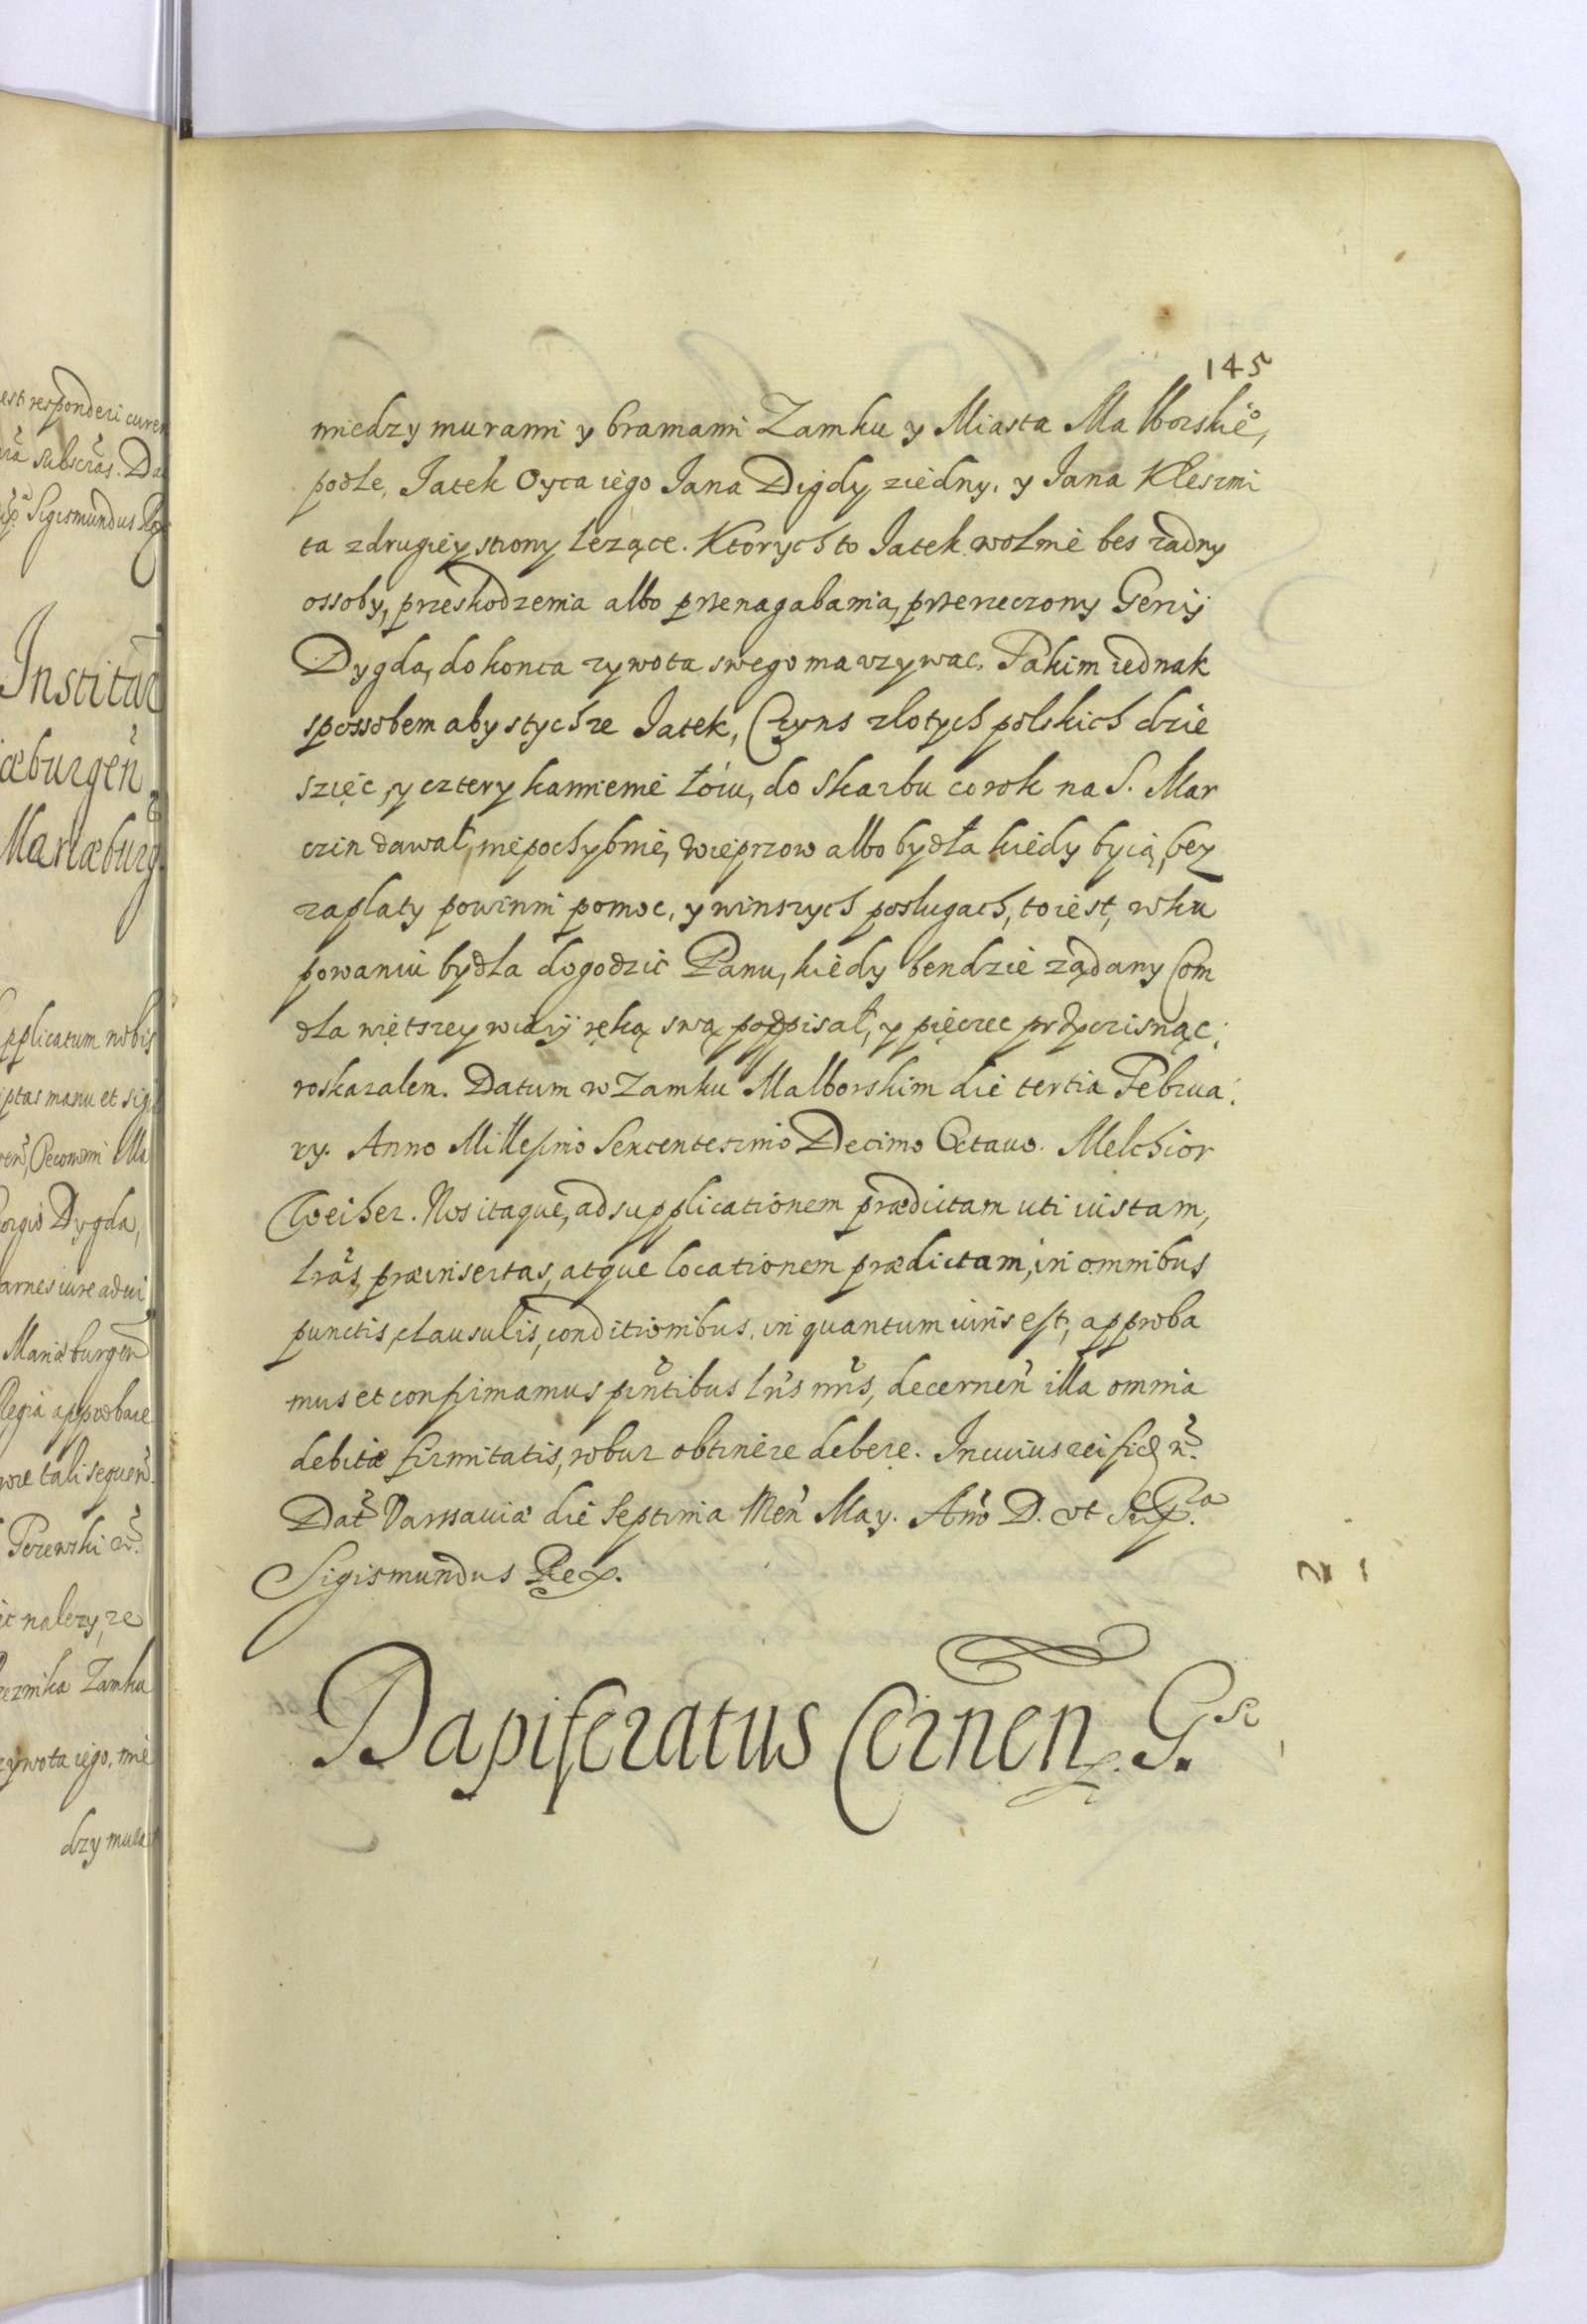 est responderi curen
subscras. Da
Sigismundus Rex
Institut
æburgen
Mariæburg
pplicatum nobis
ptas manu et sigi
Oeconomi Ma
orgio Dygda,
arnes iure advi
Mariæburgen
Regia approbare
ore tali sequen
Perewski
ic nalezy, ze
rzeznika Zamku
zywota iego, mie
dzy mura
145
miedzy murami y bramami Zamku y Miasta Malborskie°,
podle, Iatek Oyca iego Iana Digdy ziedny, y Iana Kleszmi
ta zdrugiey strony lezące. Ktorych to Iatek wolnie bes zadny
ossoby, przeskodzenia albo przenagabania, przerzeczony Gerzij
Dygda, do konca zywota swego ma vzywac. Takim iednak
spossobem aby stychze Iatek, Czyns zlotych polskich dzie
szięc, y cztery kamienie łoiu, do skarbu co rok na S. Mar
czin dawał, niepochybnie, Wieprzow albo bydła kiedy bycią, bez
zaplaty powinni pomoc, y winszych poslugach, to iest, wku
powaniu bydła dogodzic Panu, kiedy bendzie ządany Com
dla więtszey wiary ręką swą podpisał, y pięczec przyczisnąc,
roskazalem. Datum w Zamku Malborskim die tertia Februa
ry. Anno Millesimo Sexcentesimo Decimo Octauo. Melchior
Weiher. Nos itaque, ad supplicationem prædictam uti iustam,
lras, præinsertas, atque locationem prædictam, in omnibus
punctis, clausulis, conditionibus, in quantum iuris est, approba
mus et confirmamus pntibus lris nris, decernen illa omnia
debitæ firmitatis, robur obtinere debere. In cuius rei fidē n̄.
Dat Varssauiæ die septima Men May. Anno D. vt Supra
Sigismundus Rex.
Dapiferatus Cernen. G.